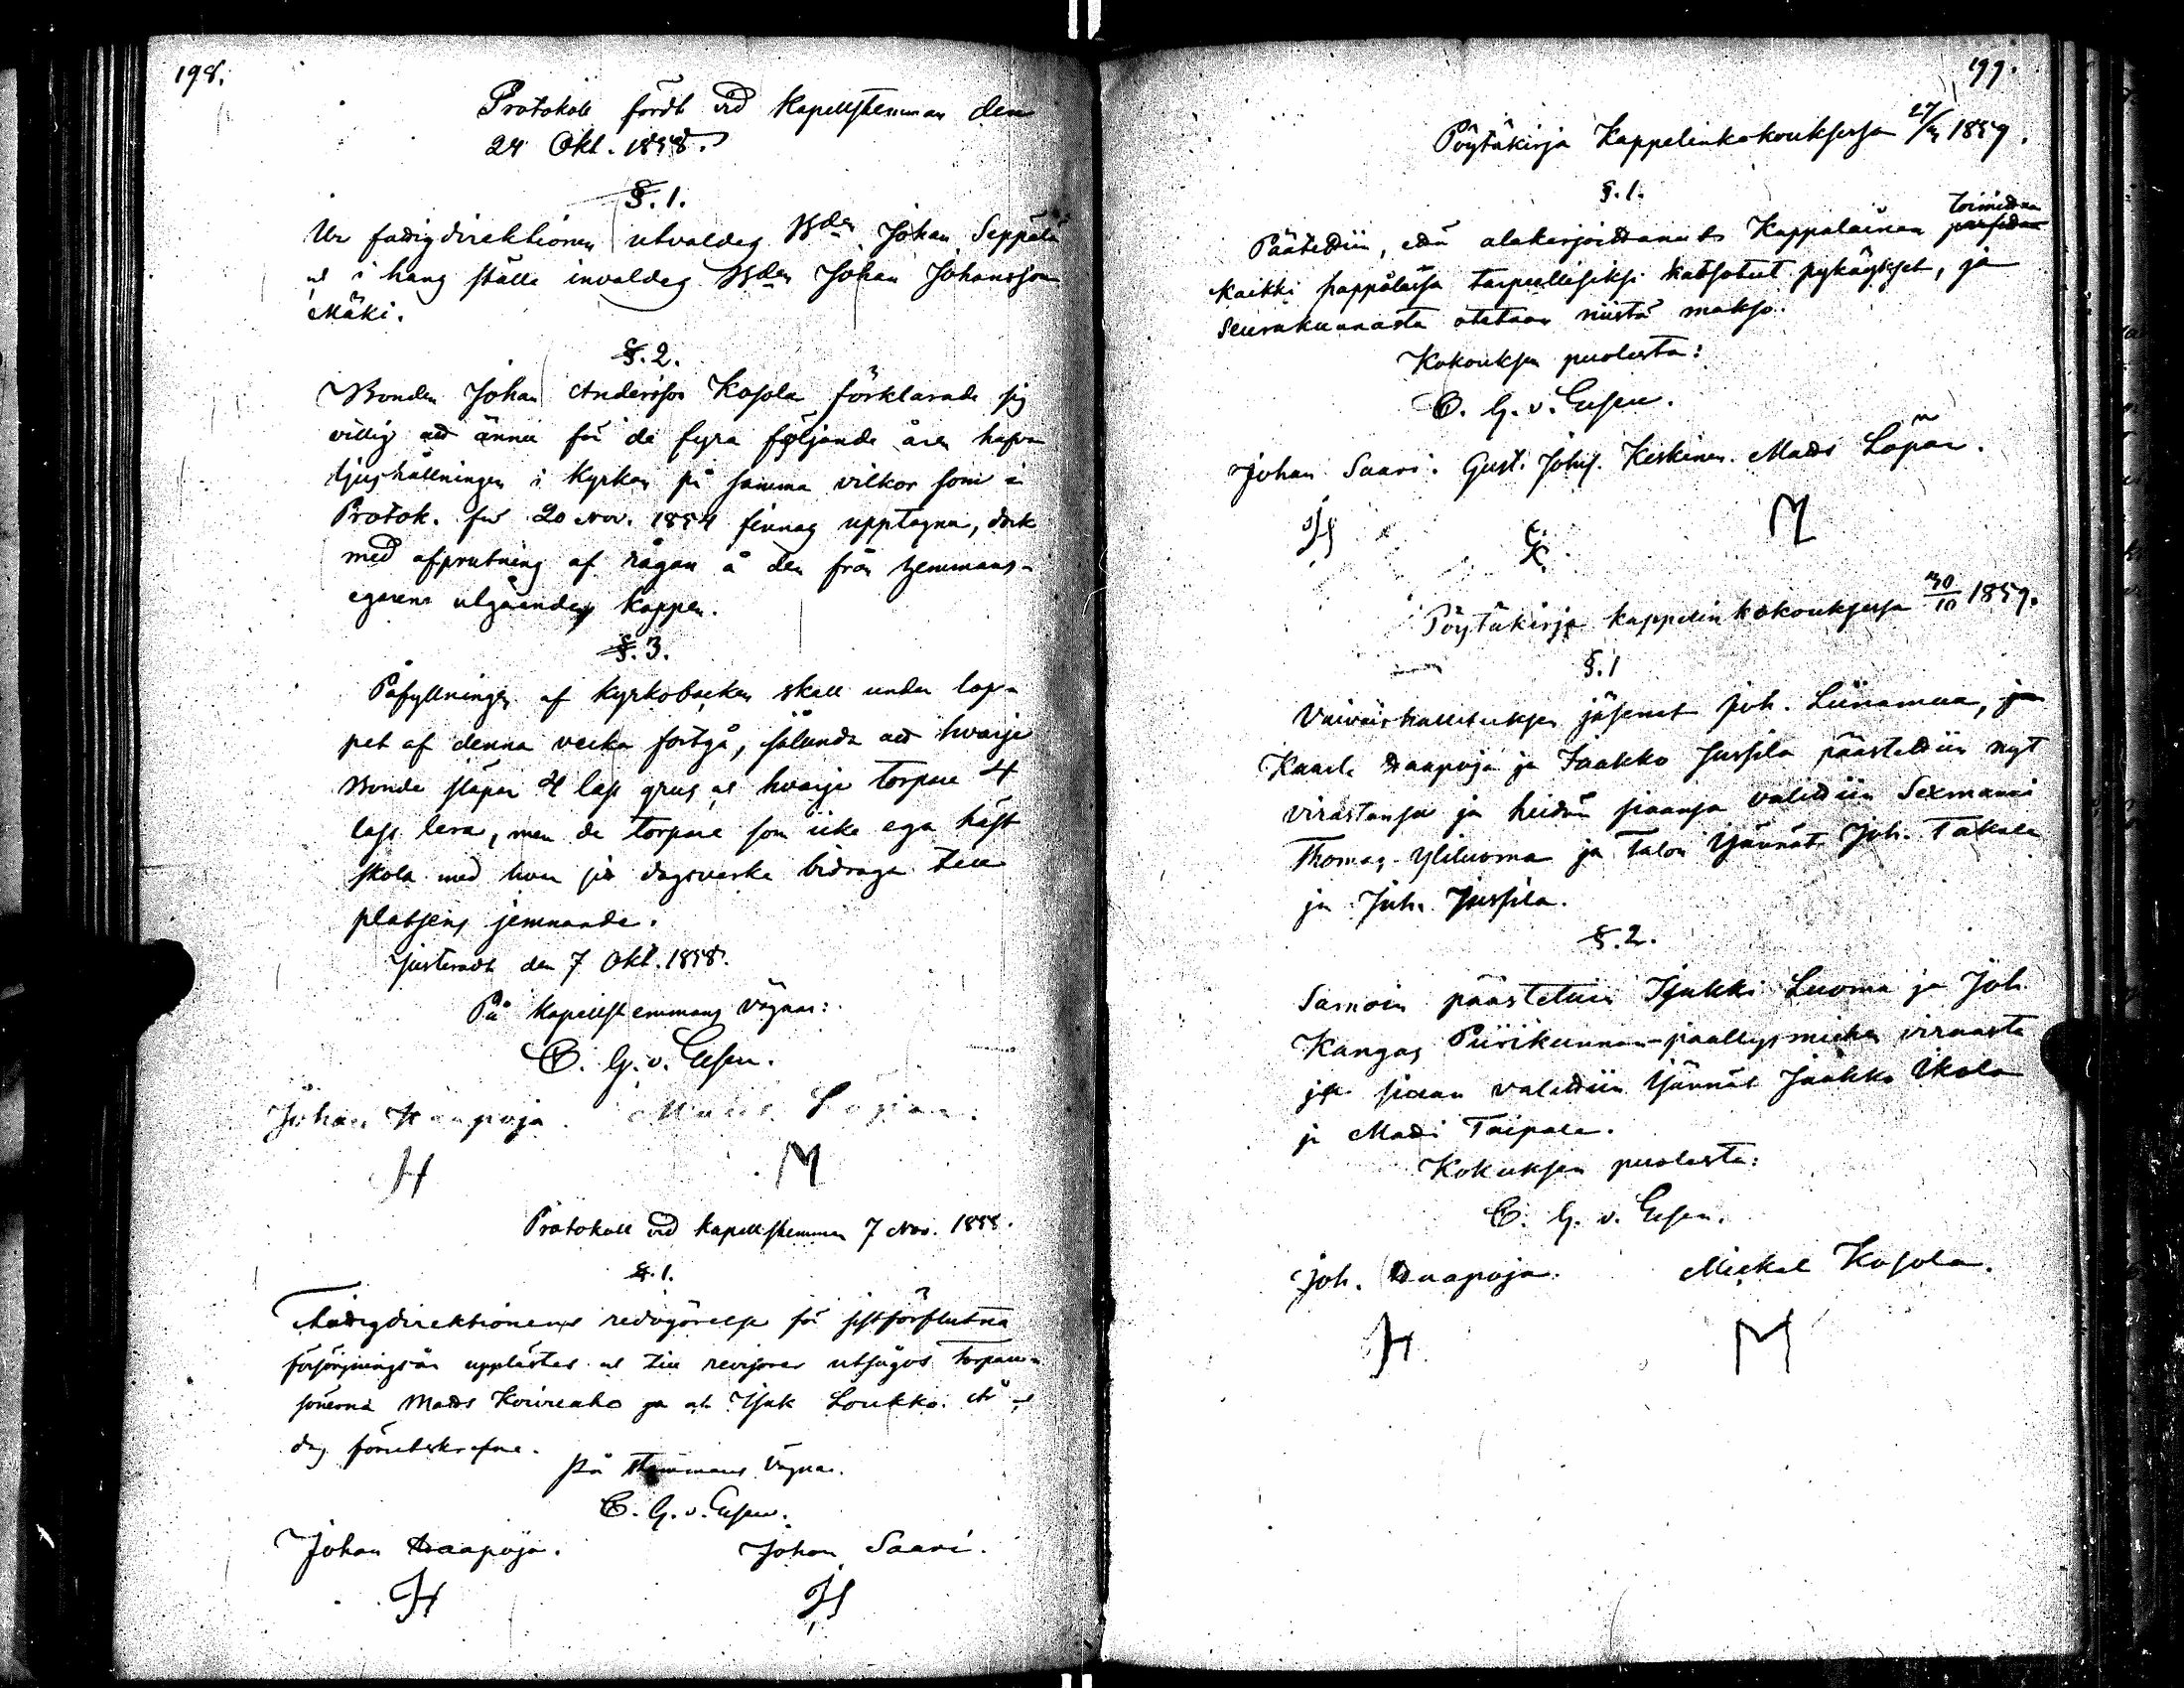 198.
Protokoll fördt vid Kapellstemman den
24 Okt. 1858.
§. 1.
Ur fattigdirektionen utvaldes Bden Johan Seppälä
och i hans ställe invaldes Bden Johan Johansson
Mäki.
§. 2.
Bonden Johan Andersson Kosola förklarade sig
villig att ännu för de fyra följande åren hafva
ljushållningen i Kyrkan på samma vilkor som i
Protok. för 20 Nov. 1854 finnas upptagna, dock
med afprutning af rågan å den från hemmans-
egarene utgående kappen.
§. 3.
Påfyllningen af Kyrkobacken skall under lop-
pet af denna vecka fortgå, sålunda att hvarje
Bonde släpar 4 lass grus och hvarje torpare 4
lass lera, men de torpare som icke ega häst
skola med hvar sin dagsverke bidraga till
platsens jemnande.
Justeradt den 7 Okt. 1858.
På Kapellstemmans vägnar:
C. G. v. Essen.
Johan Haapoja. Matts Lopan.
H M
Protokoll vid Kapellstemman 7 Nov. 1858.
§. 1.
Fattigdirektionens redogörelse för sistförflutna
försörjningsår upplästes och till revisorer utsågos torpare-
sönerna Matts Koivuaho och Isak Loukko. År och
dag förutskrefne.
På stemmans vägnar.
C. G. v. Essen.
Johan Haapoja. Johan Saari.
H H
199.
Pöytäkirja Kappelinkokouksessa 27/ 1859.
§. 1.
toimittaa
Päätettiin, että alakirjoittanut Kappalainen
kaikki pappilassa tarpeellisiksi katsotut pykäykset, ja
Seurakunnasta otetaan niistä makso.
Kokouksen puolesta:
C. G. v. Essen.
Johan Saari. Gust. Johss. Keskinen. Matts Lopan.
H K M
Pöytäkirja kappelin kokouksessa 30/10 1859.
§. 1
Vaivaishallituksen jäsenet Joh. Liinamaa,
Kaarle Haapoja ja Jaakko Jussila päästettiin nyt
virastansa ja heidän siaansa valittiin Sexmanni
Thomas Yliluoma ja Talon Isännät Joh. Takala
ja Joh. Jussila.
§. 2.
Samoin päästettiin Isakki Luoma ja Joh
Kangas Piirikunnan-päällysmiehen virasta
ja siaan valittiin Isännät Jaakko Ikola
ja Matti Taipale.
Kokuksen puolesta:
C. G. v. Essen.
Joh. Haapoja. Mickel Kosola.
H M